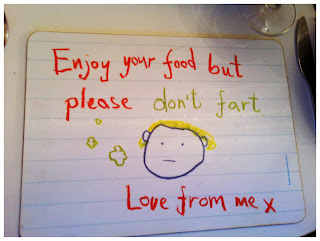 Enjoy your food but
please don't fart
Love from me x